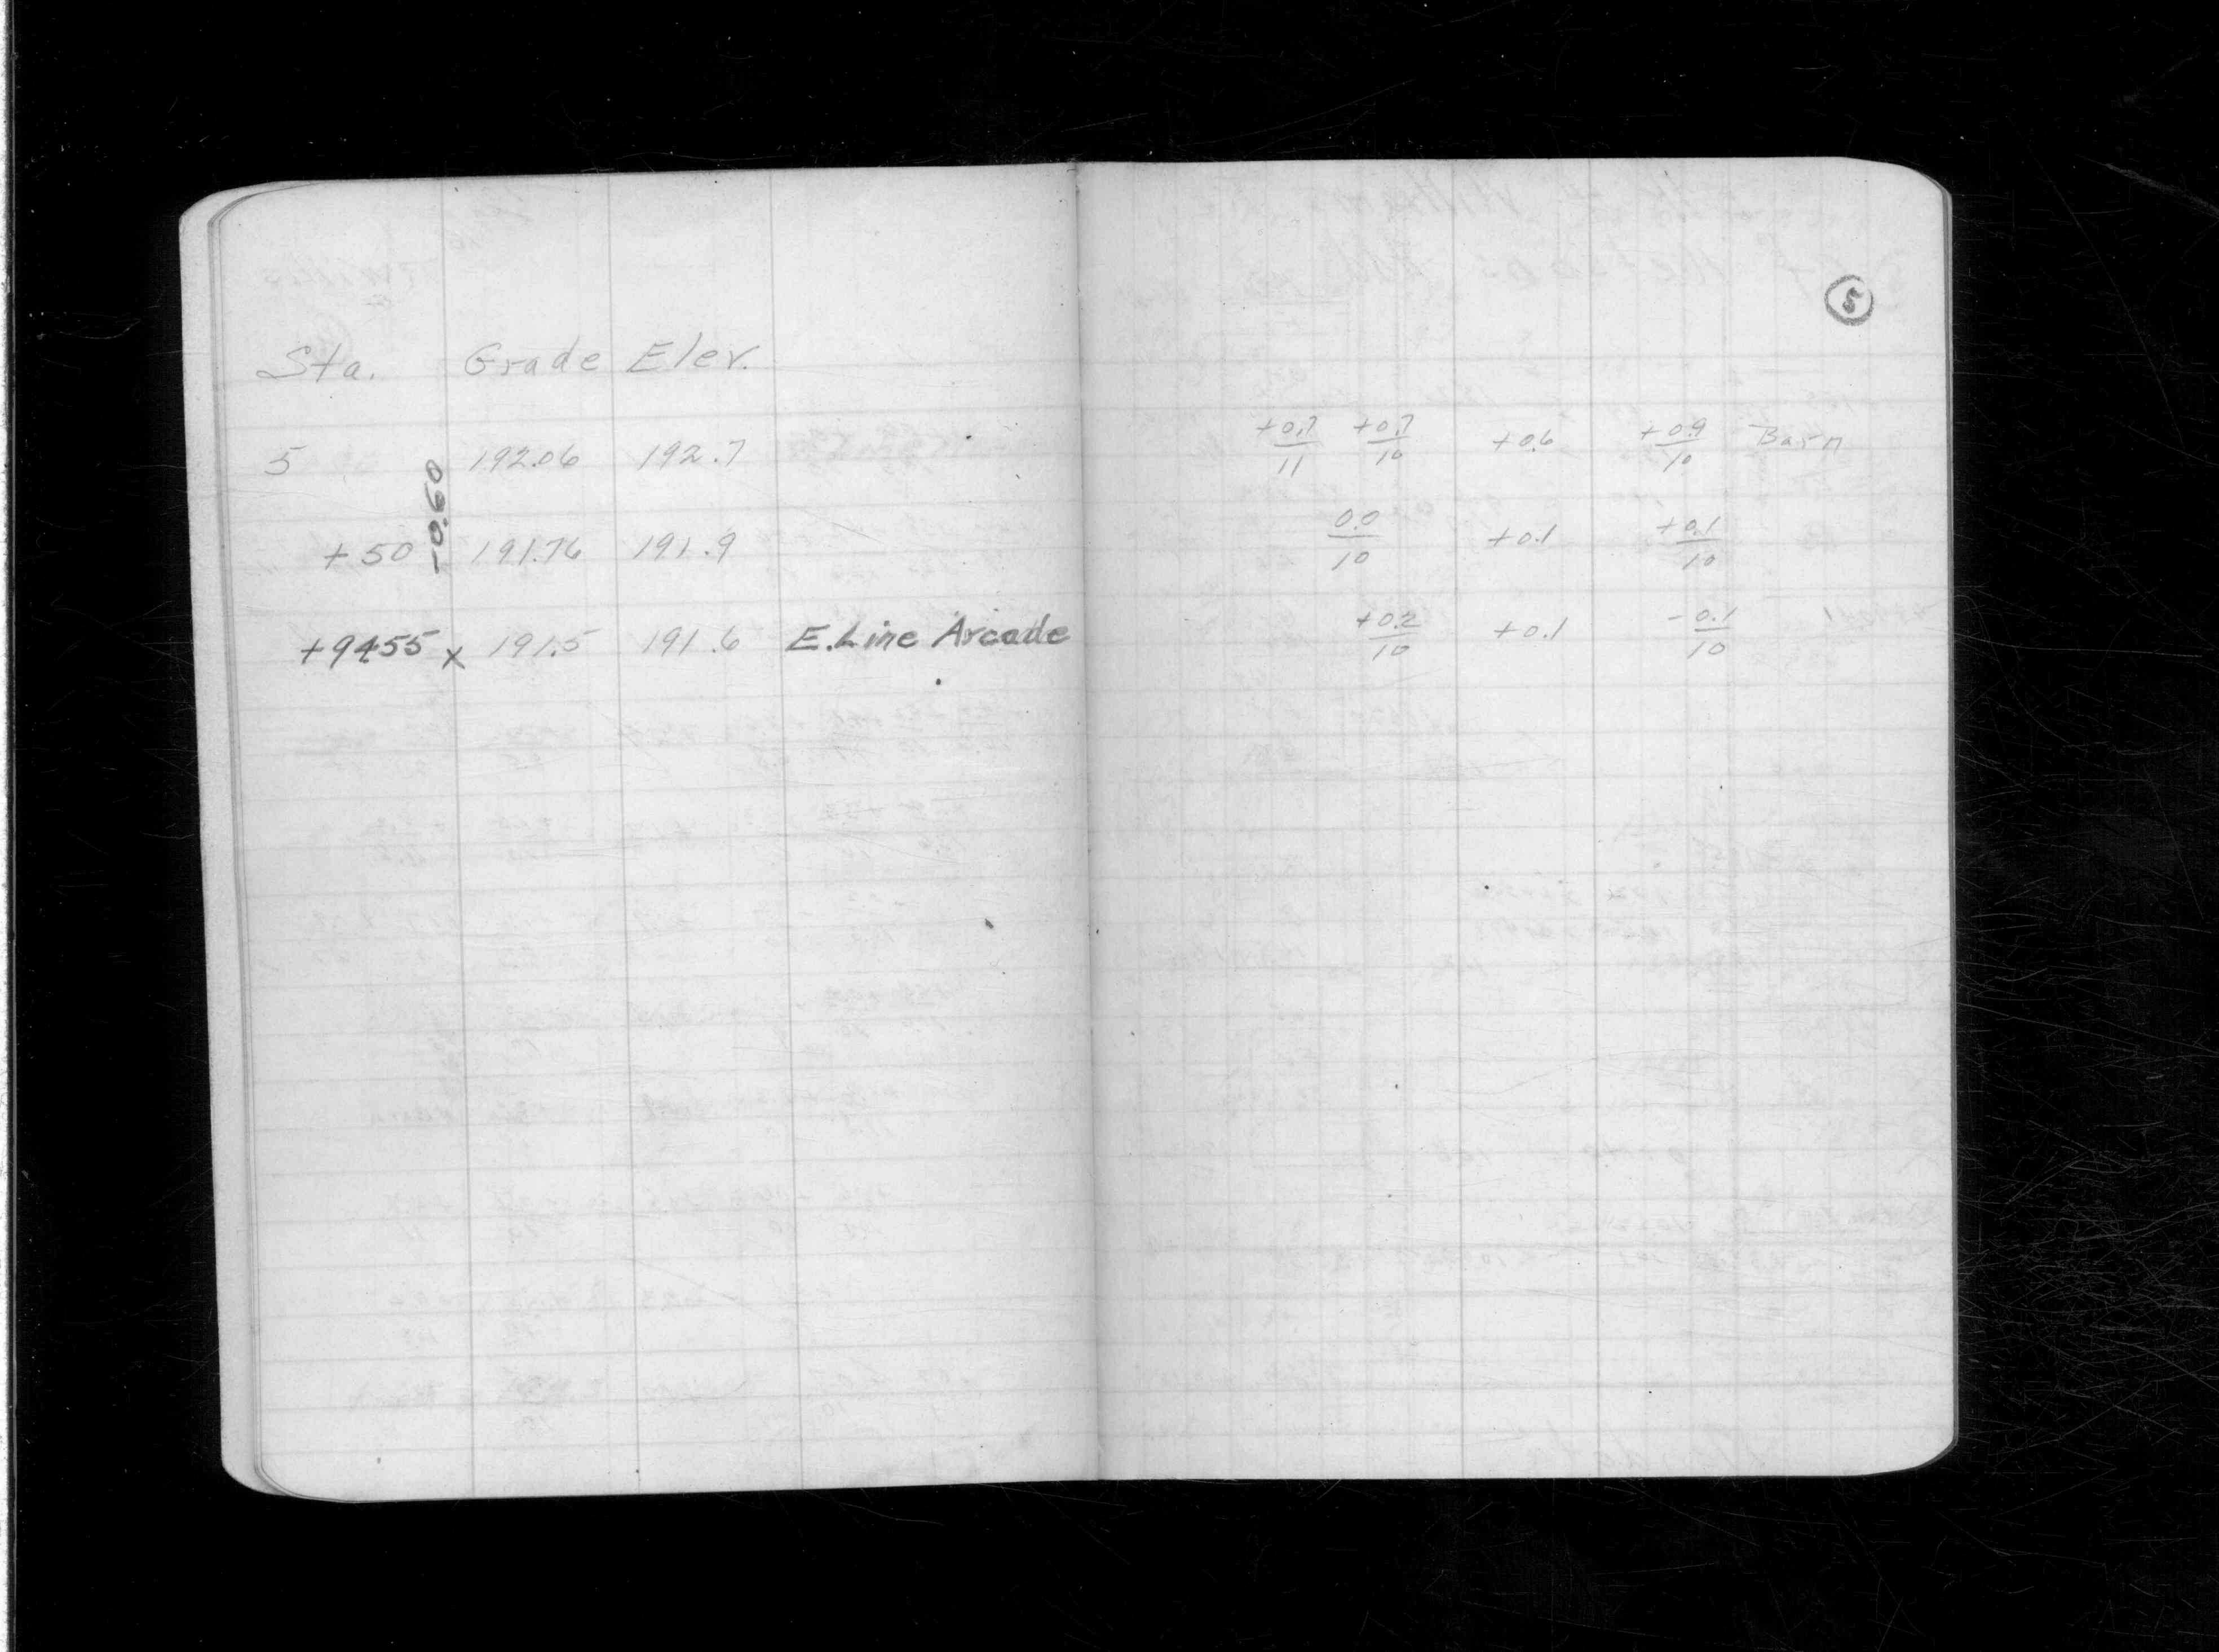 5
Sta. Grade Elev.
5 192.06 192.7 +0.7/11 +0.7/10 +0.6 +0.9/10 Barn
-0.60
+50 191.76 191.9 0.0/10 +0.1 +0.1/10
+9455 x 191.5 191.6 E.Line Arcade +0.2/10 +0.1 -0.1/10